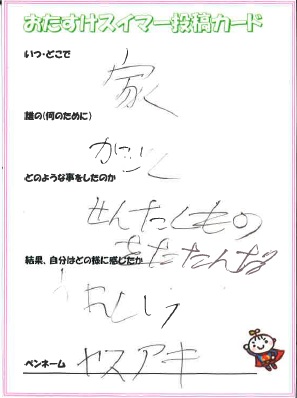 おたすけスイマー投稿カード
いつ・どこで
家
誰の(何のために)
どのような事をしたのか
せんたくもの
をたたんだ
結果、自分はどの様に感じたか
うれしい
ペンネーム
ヤスアキ